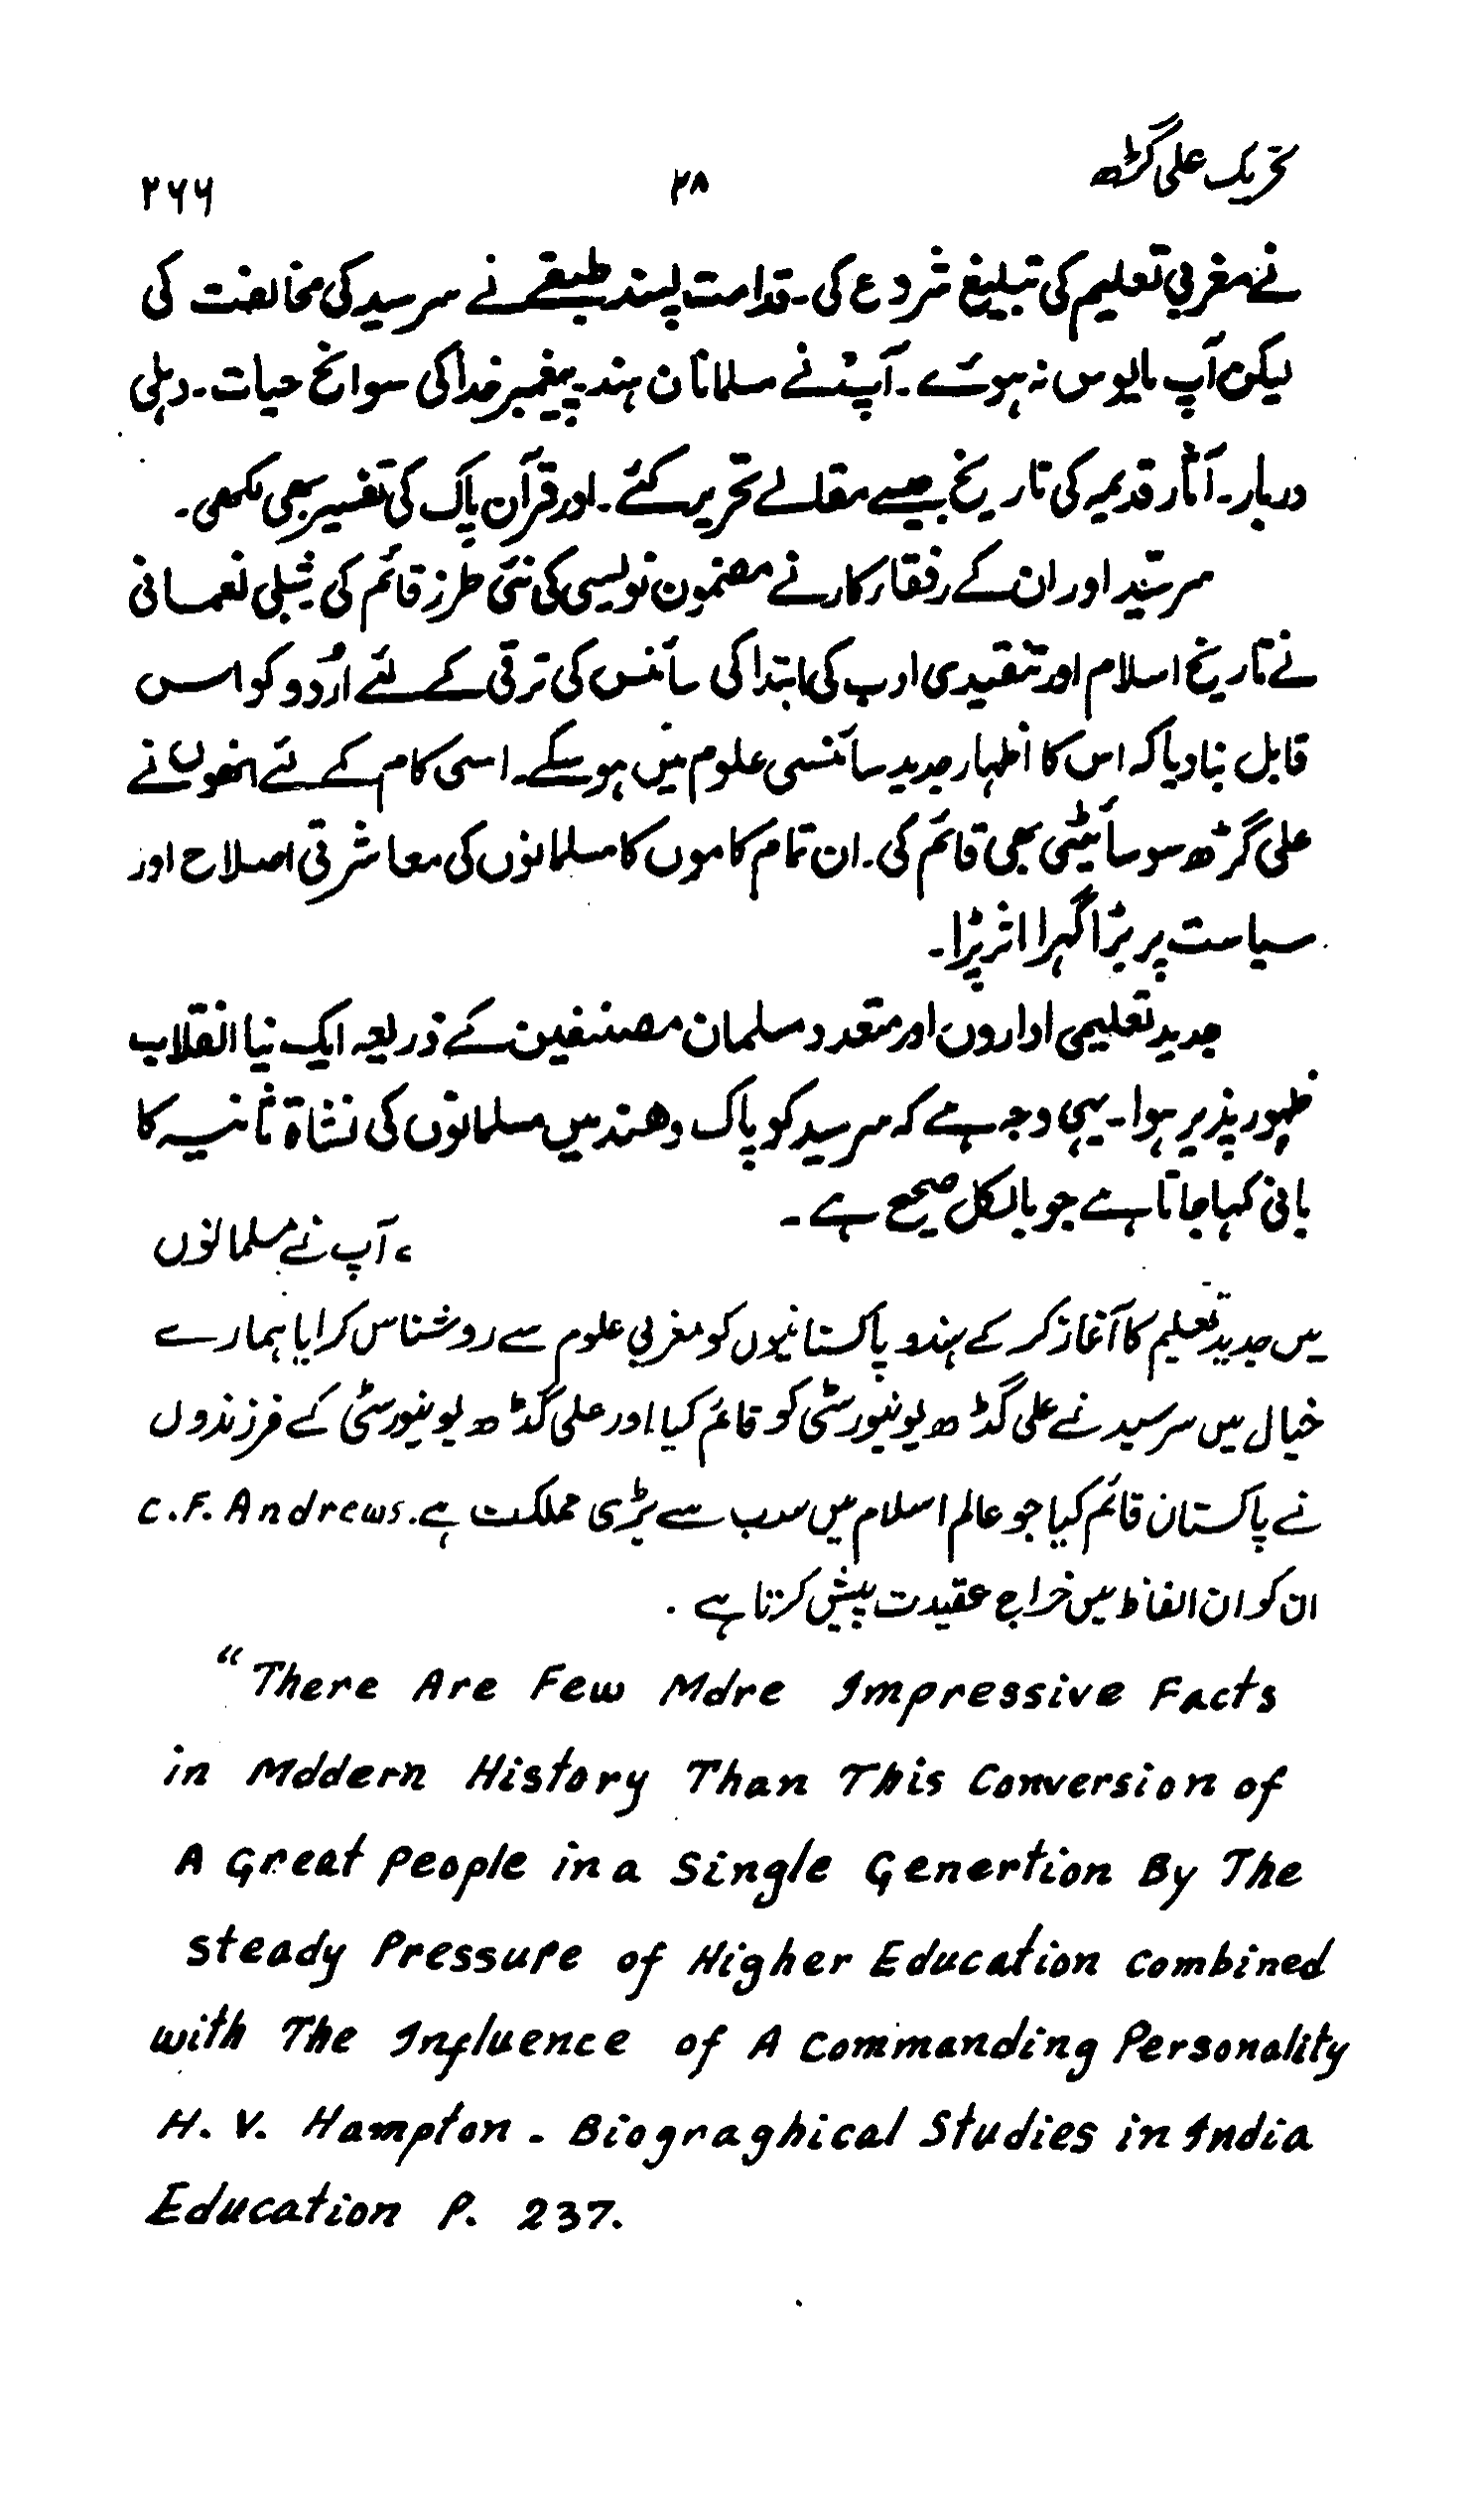 تحریک علی گڑھ ۲۸ ۲۶۶
نے مغربی تعلیم کی تبلیغ شروع کی۔ قدامت پسند طبقے نے سرسید کی مخالفت کی
لیکن آپ مایوس نہ ہوئے۔ آپ نے مسلمانان ہند۔ پیغمبر خدا کی سوانح حیات۔ دہلی
دربار۔ آثار قدیمہ کی تاریخ جیسے مقالے تحریر کئے۔ اور قرآن پاک کی تفسیر بھی لکھی۔
سرسیّد اور ان کے رفقار کار نے مضمون نویسی کی نئی طرز قائم کی شبلی نعمانی
نے تاریخ اسلام اور تنقیدی ادب کی ابتدا کی سائنس کی ترقی کے لئے اُردو کو اس
قابل بنا دیا کہ اس کا اظہار جدید سائنسی علوم میں ہو سکے۔ اسی کام کے لئے انھوں نے
علی گڑھ سوسائیٹی بھی قائم کی۔ ان تمام کاموں کا مسلمانوں کی معاشرتی اصلاح اور
سیاست پر بڑا گہرا اثر پڑا۔
جدید تعلیمی اداروں اور متعدد مسلمان مصنفین کے ذریعہ ایک نیا انقلاب
ظہور پذیر ہوا۔ یہی وجہ ہے کہ سرسید کو پاک و ہند میں مسلمانوں کی نشاۃ ثانیہ کا
بانی کہا جاتا ہے جو بالکل صحیح ہے۔
، آپ نے مسلمانوں
میں جدید تعلیم کا آغاز کر کے ہند و پاکستانیوں کو مغربی علوم سے روشناس کرایا ہمارے
خیال میں سرسید نے علی گڈھ یونیورسٹی کو قائم کیا اور علی گڈھ یونیورسٹی کے فرزندوں
نے پاکستان قائم کیا جو عالم اسلام میں سب سے بڑی مملکت ہے۔ C.F. Andrews.
ان کو ان الفاظ میں خراج عقیدت پیش کرتا ہے.
“There Are Few Mdre Impressive Facts
in Mddern History Than This Conversion of
A Great People in a Single Genertion By The
Steady Pressure of Higher Education Combined
with The Influence of A Commanding Personality
H. V. Hampton - Biograghical Studies in India
Education P. 237.